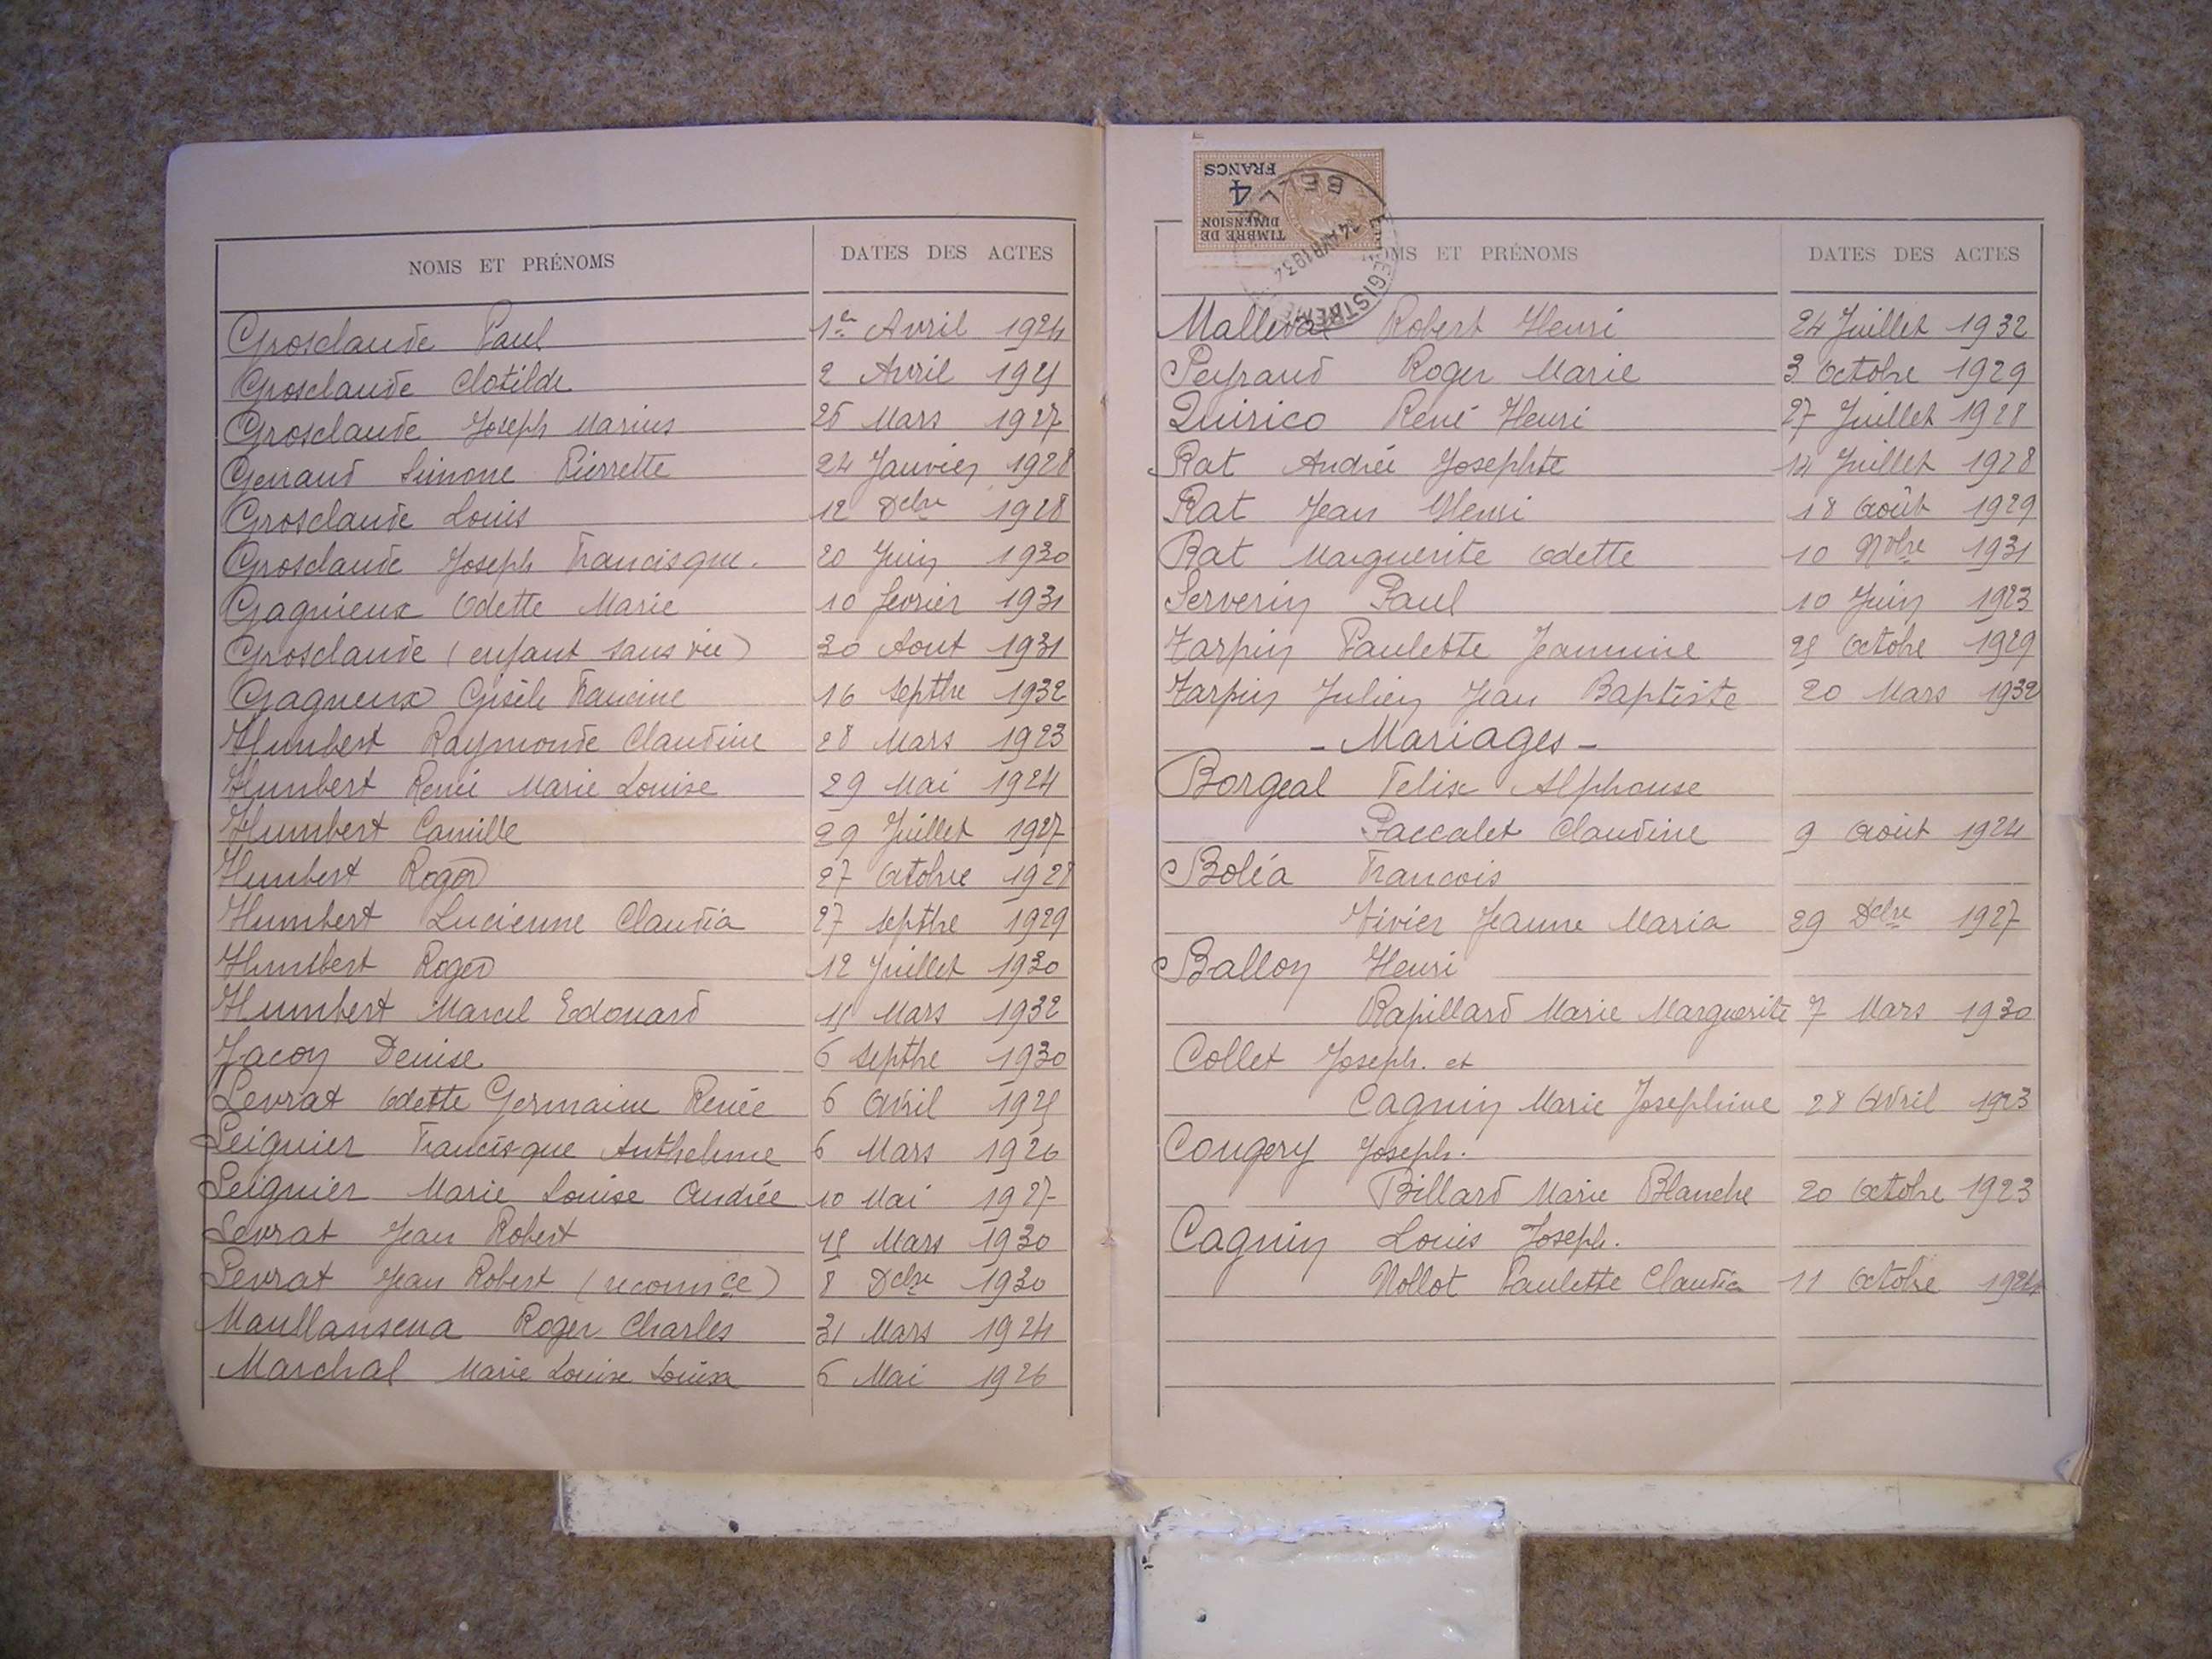 NOMS ET PRÉNOMS
DATES DES ACTES
Grosclaude Paul 1er Avril 1924
Grosclaude Clotilde 2 Avril 1925
Grosclaude Joseph Marius 25 Mars 1927
Genaud Simone Pierrette 24 Janvier 1928
Grosclaude Louis 12 Dcbre 1928
Grosclaude Joseph Francisque. 20 Juin 1930
Gagnieux Odette Marie 10 fevrier 1931
Grosclaude (enfant sans vie) 30 Aout 1931
Gagneux Gisèle Francine 16 Septbre 1932
Humbert Raymonde Claudine 28 Mars 1923
Humbert Renée Marie Louise 29 Mai 1924
Humbert Camille 29 Juillet 1927
Humbert Roger 27 Octobre 1928
Humbert Lucienne Claudia 27 Septbre 1929
Humbert Roger 12 Juillet 1930
Humbert Marcel Edouard 15 Mars 1932
Jacon Denise 6 Septbre 1930
Levrat Odette Germaine Renée 6 Avril 1925
Leignier Francisque Anthelme 6 Mars 1926
Leignier Marie Louise Andrée 10 Mai 1927
Levrat Jean Robert 15 Mars 1930
Levrat Jean Robert (reconnce) 8 Dcbre 1930
Roger Charles 31 Mars 1924
Marchal Marie Louise Louisa 6 Mai 1926
TIMBRE DE
DIMENSION
4
FRANCS
NOMS ET PRÉNOMS
DATES DES ACTES
Malleval Robert Henri 24 Juillet 1932
Peyraud Roger Marie 3 Octobre 1929
Quirico René Henri 27 Juillet 1928
Rat Andrée Josephte 14 Juillet 1928
Rat Jean Henri 18 Août 1929
Rat Marguerite Odette 10 Nvbre 1931
Serverin Paul 10 Juin 1923
Tarpin Paulette Jeannine 25 Octobre 1929
Tarpin Julien Jean Baptiste 20 Mars 1932
- Mariages -
Borgeal Felix Alphonse
Paccalet Claudine 9 Août 1924
Boléa Francois
Vivier Jeanne Maria 29 Dcbre 1927
Ballon Henri
Rapillard Marie Marguerite 7 Mars 1930
Collet Joseph. et
Cagnin Marie Josephine 28 Avril 1923
Cougery Joseph.
Billard Marie Blanche 20 Octobre 1923
Cagnin Louis Joseph.
Nollot Paulette Claudia 11 Octobre 1924